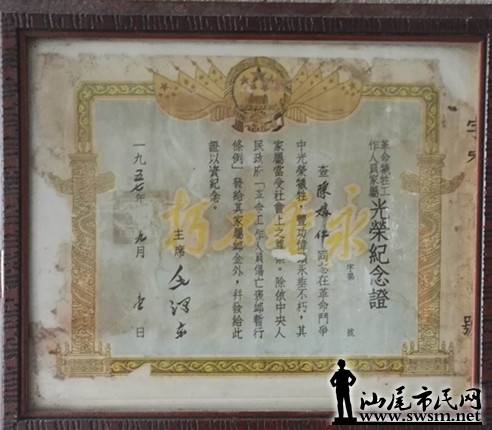 革命犧牲工
作人員家屬
光榮紀念證
字第
號
查陳 仁同志在革命鬥爭
中光榮犧牲，豐功偉績永垂不朽，其
家屬當受社會上之尊崇。除依中央人
民政府「革命工作人員傷亡褒卹暫行
條例」發給其家屬卹金外，并發給此
證以資紀念。
主席 毛澤东
一九五七年 九月 壹日
永垂不朽
字第
號
汕尾市民网
www.swsm.net